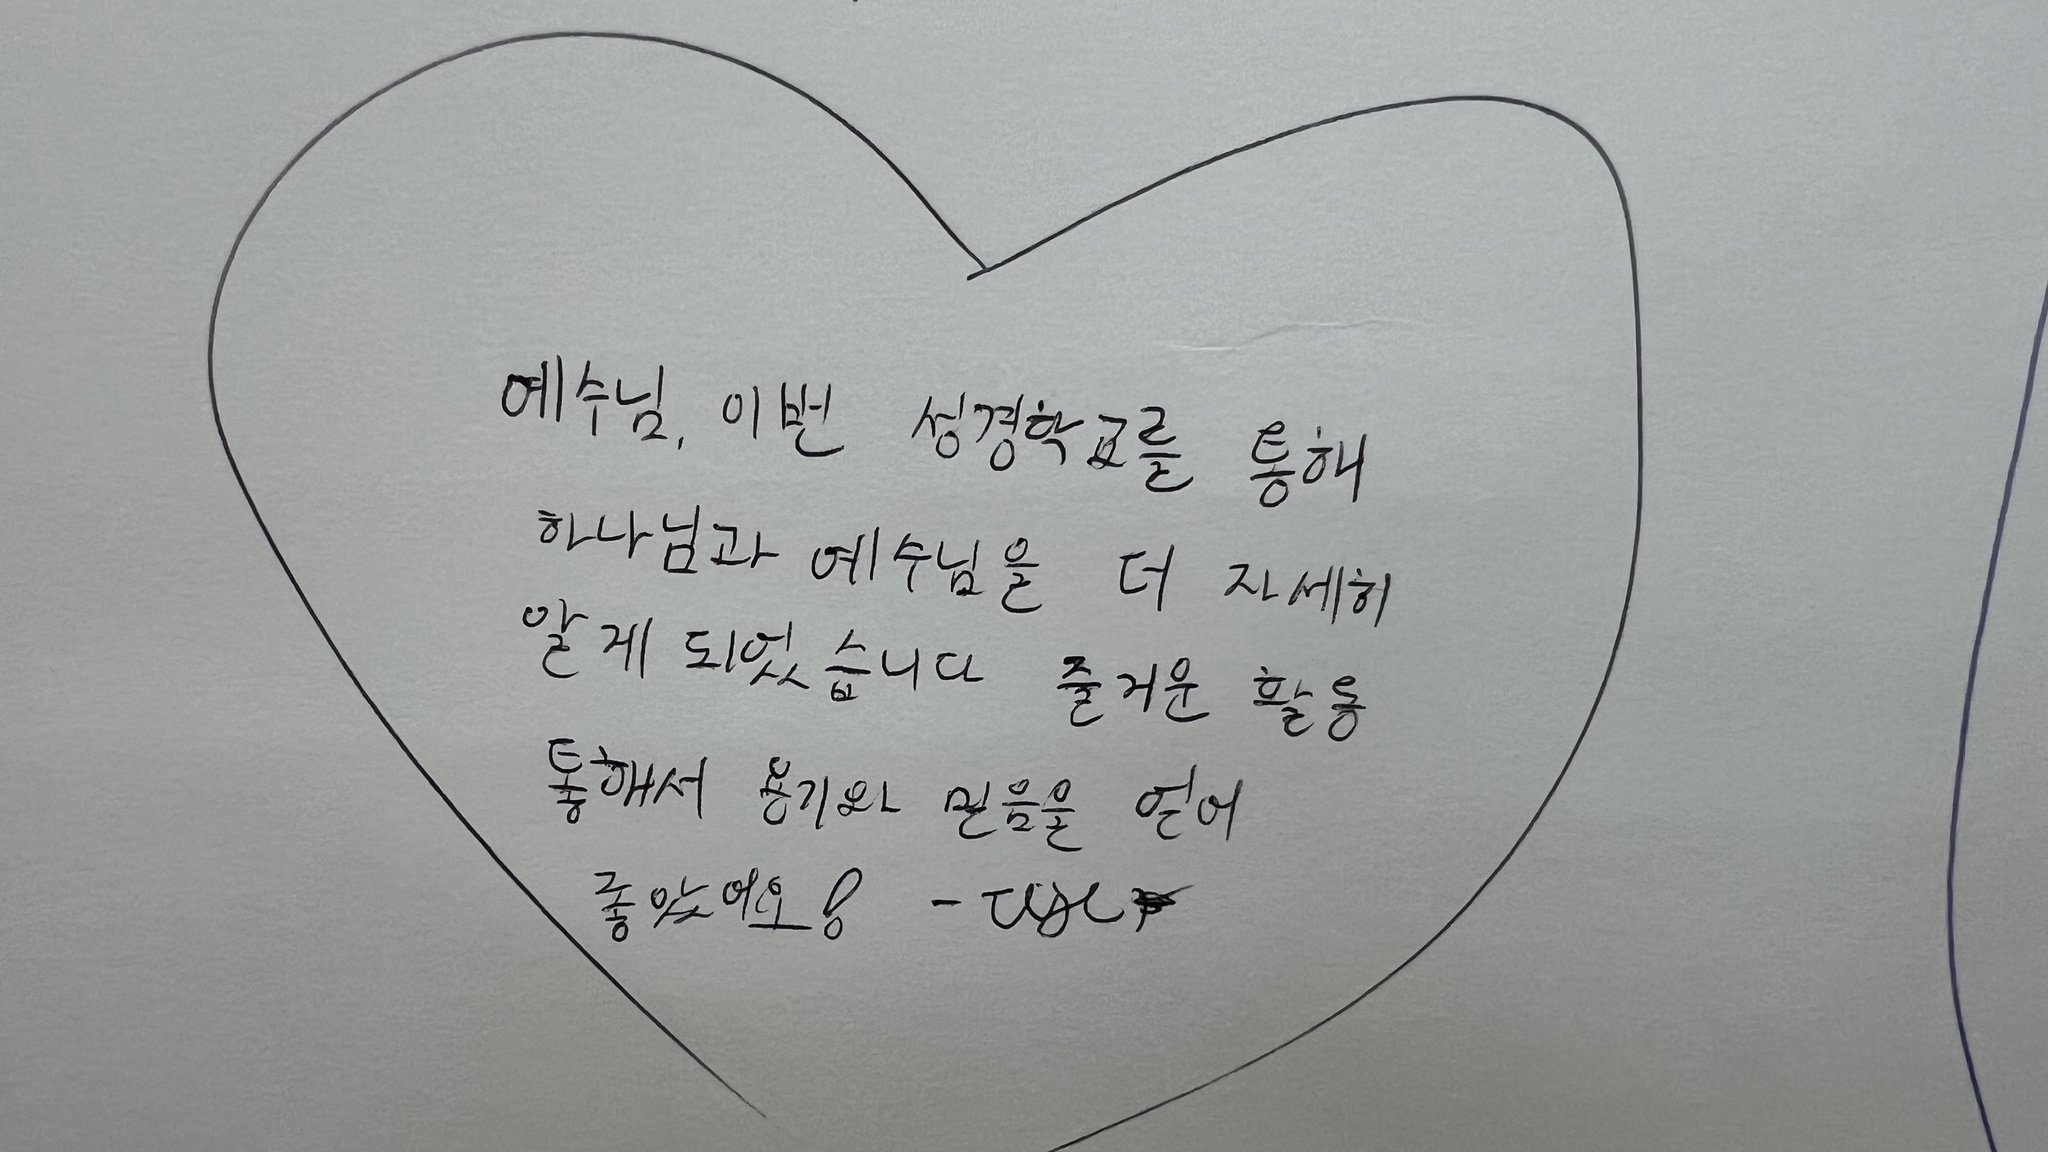 예수님, 이번 성경학교를 통해
하나님과 예수님을 더 자세히
알게 되었습니다 즐거운 활동
통해서 용기와 믿음을 얻어
좋았어요!